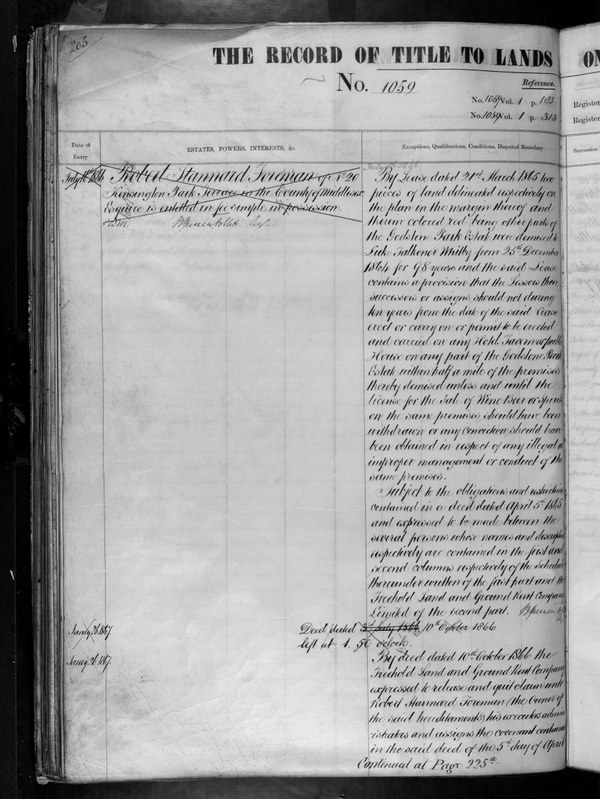 203
THE RECORD OF TITLE TO LANDS
ON
No. 1059
Reference.
No. 1059 Vol. 1 p. 185
No. 1059 Vol. 1 p. 313
Register
Register
Date of Entry
ESTATES, POWERS, INTERESTS, &c.
Exceptions, Qualifications, Conditions, Disputed Boundary
Succession
Robert Stannard Foreman of No 20
Kensington Park Terrace in the County of Middlesex
Esquire is entitled in fee simple in possession.
By Lease dated 21st March 1865 two
pieces of land delineated respectively on
the plan in the margin thereof and
therein colored red being other parts of
the Godstone Park Estate were demised to
Luke Falkener Whitby from 25th December
1864 for 98 years and the said Lease
contains a provision that the Lessors their
successors or assigns should not during
ten years from the date of the said Lease
erect or carry on or permit to be erected
and carried on any Hotel Tavern or public
House on any part of the Godstone Park
Estate within half a mile of the premises
thereby demised unless and until the
license for the Sale of Wine Beer or Spirits
on the same premises should have been
withdrawn or any Conviction should have
been obtained in respect of any illegal or
improper management or conduct of the
same premises.
Subject to the obligations and restrictions
contained in a deed dated April 5th 1865
and expressed to be made between the
several persons whose names and descriptions
respectively are contained in the first and
second columns respectively of the schedule
thereunder written of the first part and the
Freehold Land and Ground Rent Company
Limited of the second part.
Jany 26 1867
Deed dated 3d July 1866 10th October 1866
left at 1. 50 o'clock.
Jany 26 1867
By deed dated 10th October 1866 the
Freehold Land and Ground Rent Company
expressed to release and quit claim unto
Robert Stannard Foreman (the Owner of
the said hereditaments) his executors admin
istrators and assigns the covenant contained
in the said deed of the 5th day of April
Continued at Page 225th